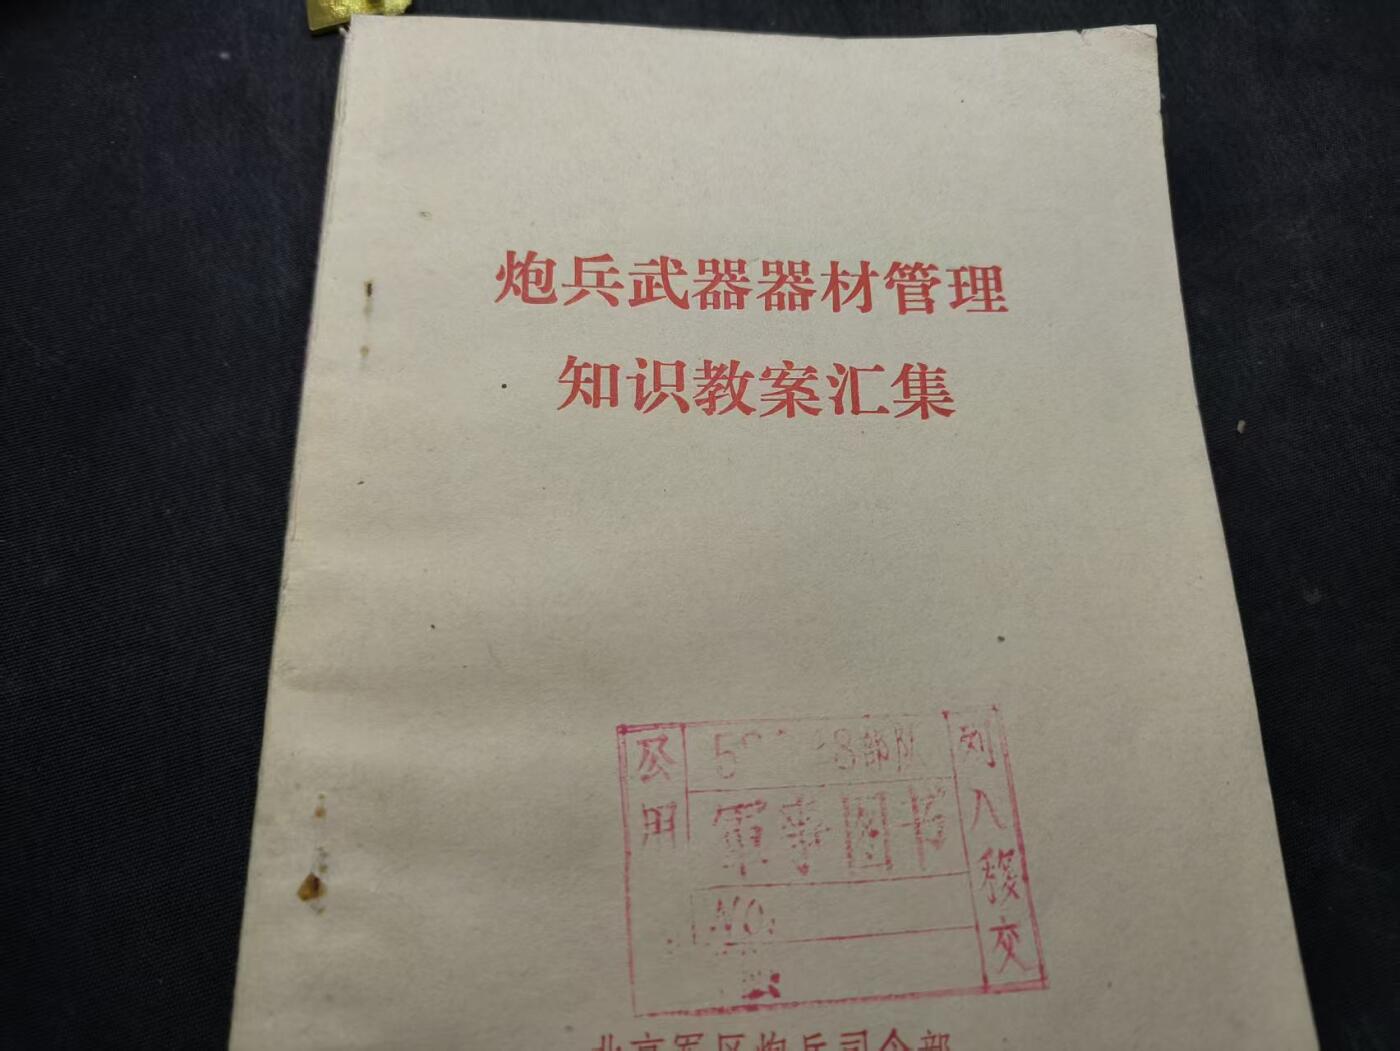 炮兵武器器材管理
知识教案汇集
公用
部队
軍事图书
NO.
列入移交
北京军区炮兵司令部